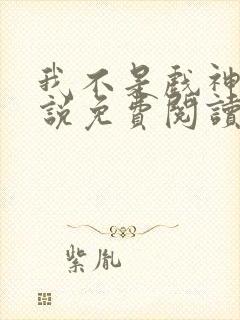 我不是戲神
說免費閱讀
紫胤